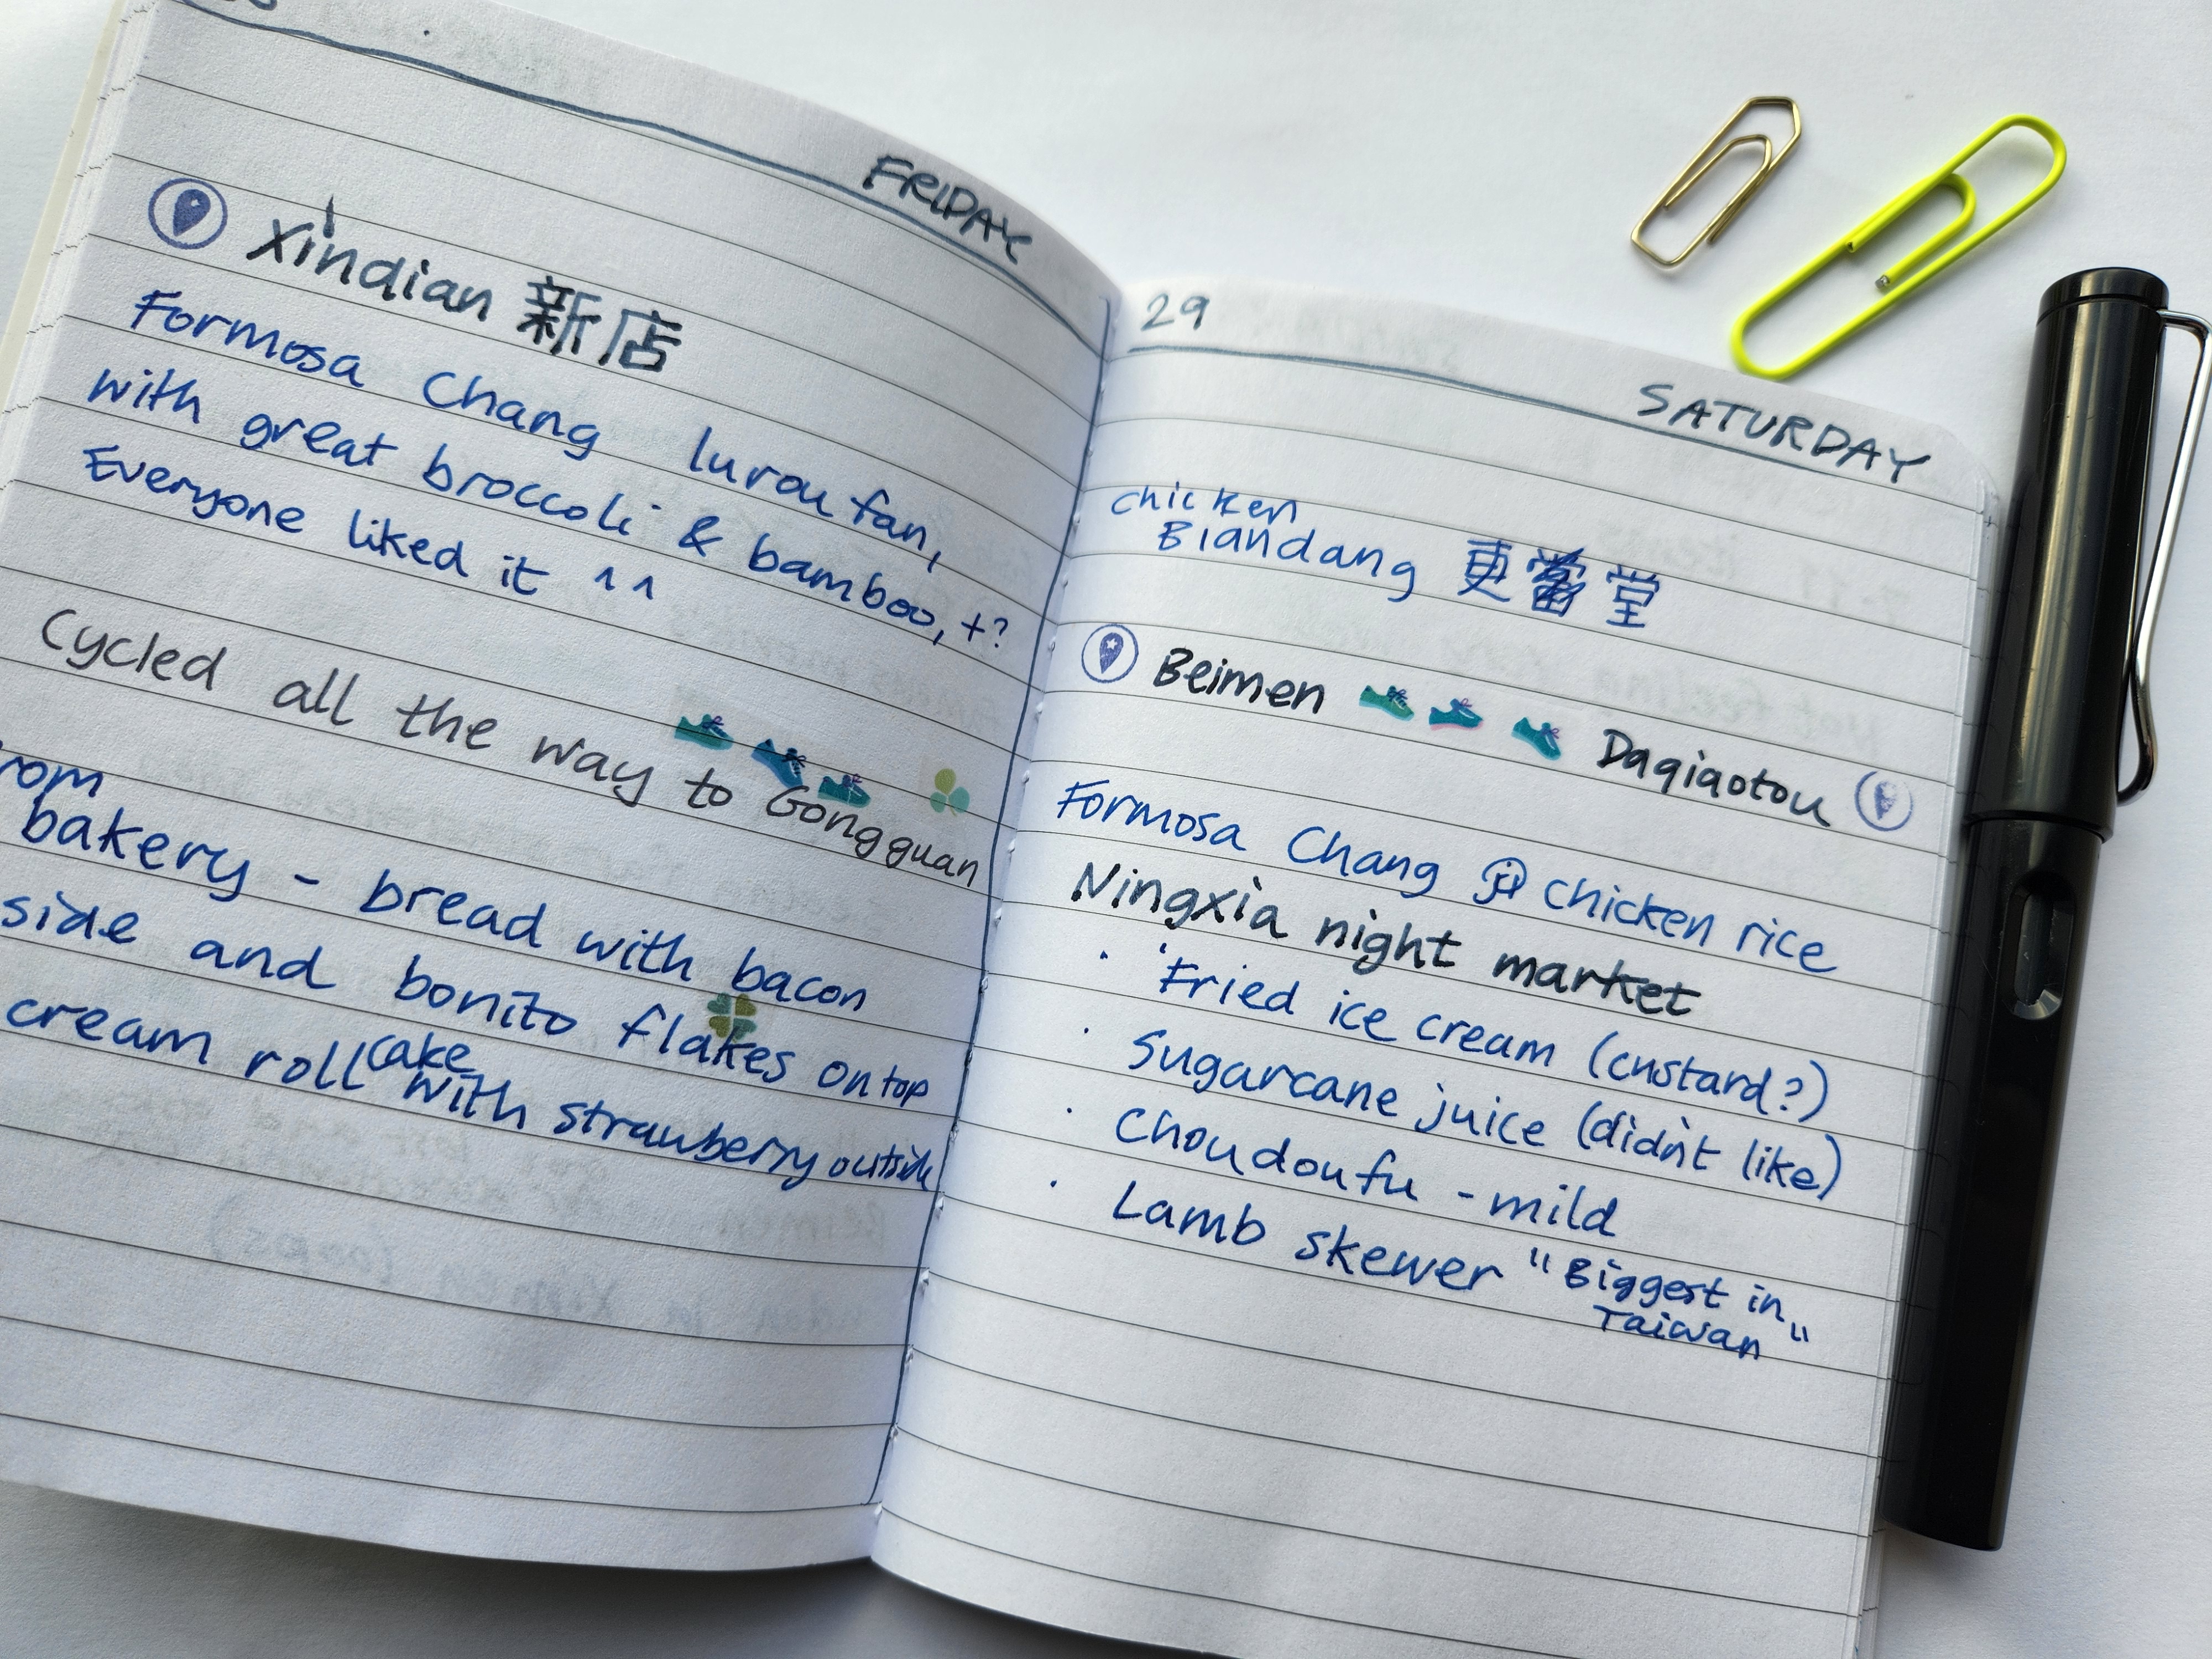 FRIDAY
Xindian 新店
Formosa Chang lurou fan,
with great broccoli & bamboo, +?
Everyone liked it ^^
Cycled all the way to Gongguan
rom
bakery - bread with bacon
side and bonito flakes on top
cream roll cake with strawberry outside
29
SATURDAY
chicken
Biandang 更 堂
Beimen Daqiaotou
Formosa Chang chicken rice
Ningxia night market
· Fried ice cream (custard?)
· Sugarcane juice (didn't like)
· Choudoufu - mild
· Lamb skewer "Biggest in
Taiwan"